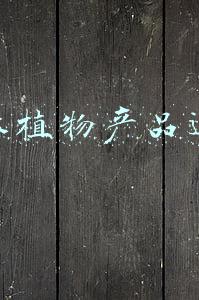 植物产品